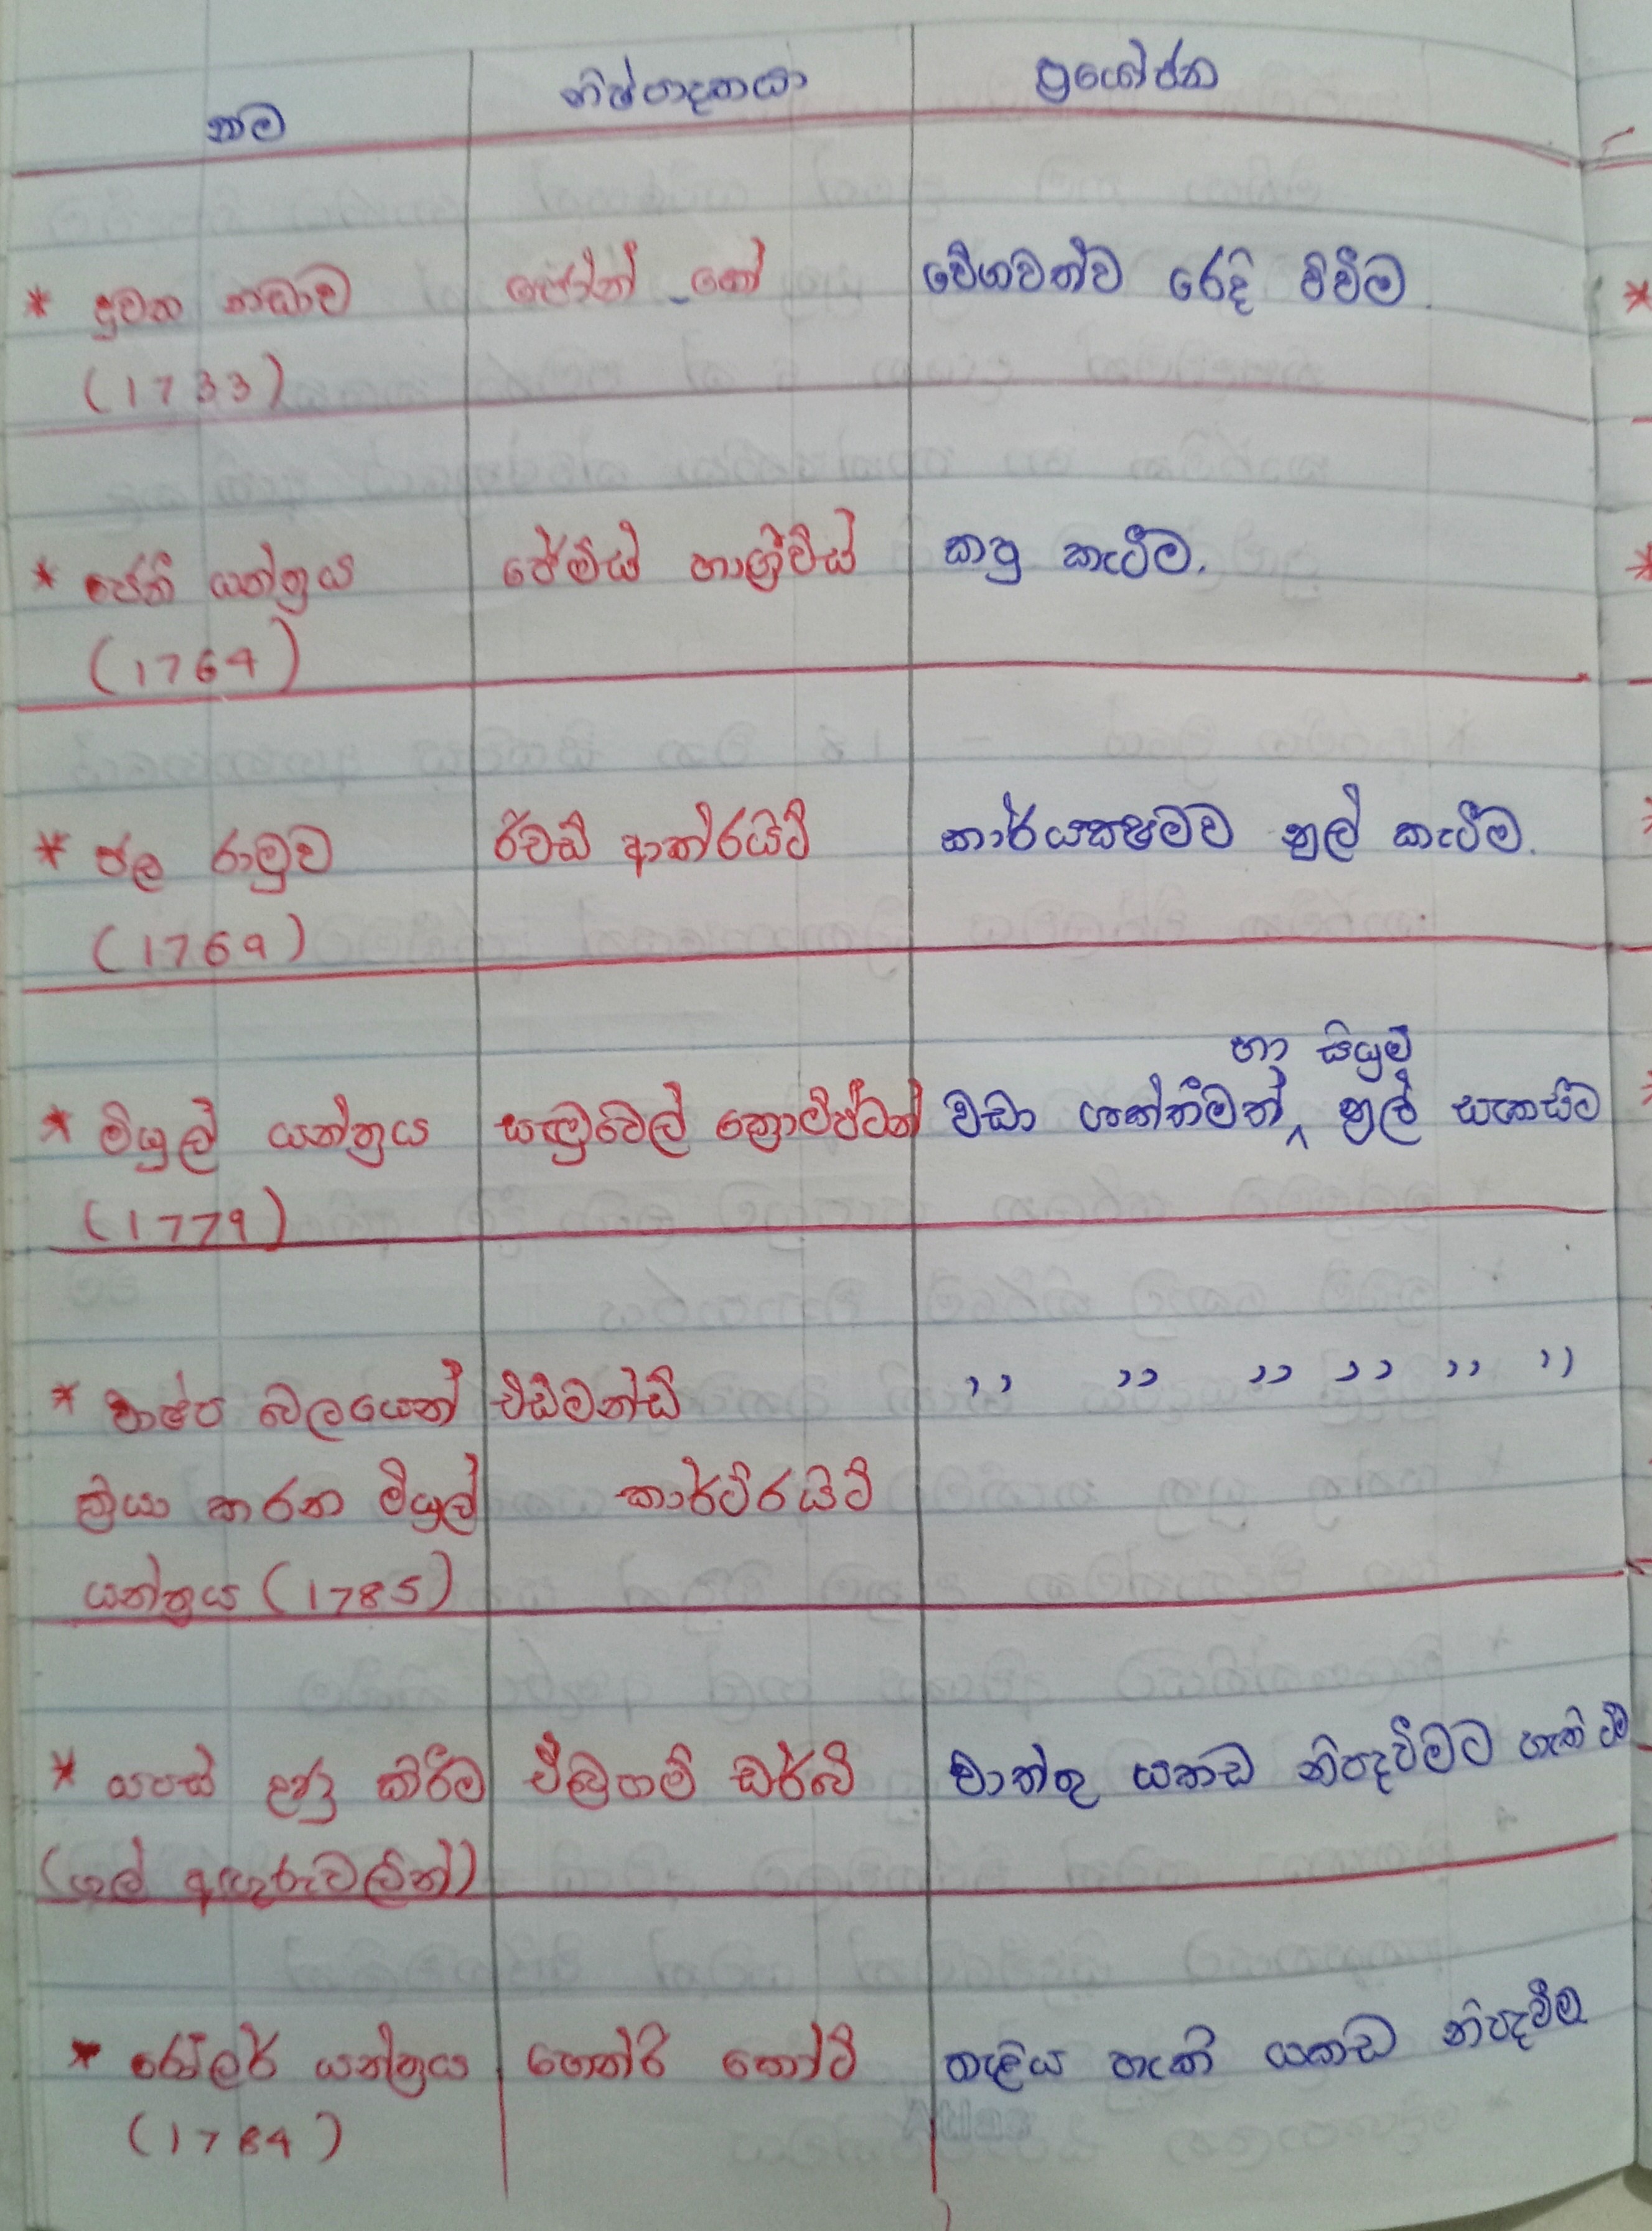 නම නිෂ්පාදකයා ප්‍රයෝජන
* දුවන නඩාව ජෝන් කේ වේගවත්ව රෙදි විවීම
(1733)
* ජෙනි යන්ත්‍රය ජේම්ස් හාග්‍රීව්ස් කපු කැටීම.
(1764)
* ජල රාමුව රිචඩ් ආක්රයිට් කාර්යක්ෂමව නූල් කැටීම.
(1769)
හා සියුම්
* මියුල් යන්ත්‍රය සැමුවෙල් ක්‍රොම්ප්ටන් වඩා ශක්තිමත් ^ නූල් සැකසීම
(1779)
* වාෂ්ප බලයෙන් එඩ්මන්ඩ් ,, ,, ,, ,, ,, ,,
ක්‍රියා කරන මියුල් කාර්ට්රයිට්
යන්ත්‍රය (1785)
* යපස් උණු කිරීම ඒබ්‍රහම් ඩර්බි වාත්තු යකඩ නිපදවීමට හැකි වීම
(ගල් අඟුරුවලින්)
* රෝලර් යන්ත්‍රය හෙන්රි කෝට් තැළිය හැකි යකඩ නිපදවීම
(1784)